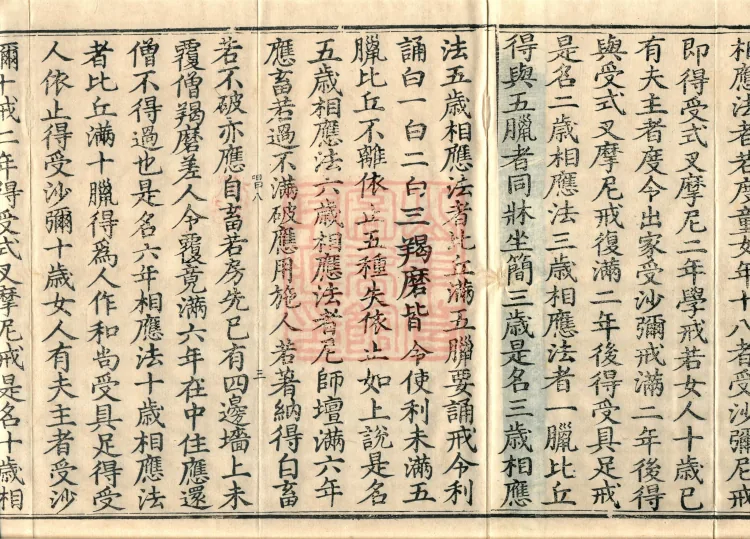 相應法者若度童女年十八者受沙彌尼戒
即得受式叉摩尼二年學戒若女人十歲已
有夫主者度令出家受沙彌戒滿二年後得
與受式叉摩尼戒復滿二年後得受具足戒
是名二歲相應法三歲相應法者一臘比丘
得與五臘者同牀坐簡三歲是名三歲相應
法五歲相應法者比丘滿五臘要誦戒令利
誦白一白二白三羯磨皆令使利未滿五
臘比丘不離依止五種失依止如上說是名
五歲相應法六歲相應法者尼師壇滿六年
應畜若過不滿破應用施人若著納得白畜
唱八
三
若不破亦應自畜若房先已有四邊墻上未
覆僧羯磨差人令覆竟滿六年在中住應還
僧不得過也是名六年相應法十歲相應法
者比丘滿十臘得爲人作和尚受具足得受
人依止得受沙彌十歲女人有夫主者受沙
彌十戒二年得受式叉摩尼戒是名十歲相